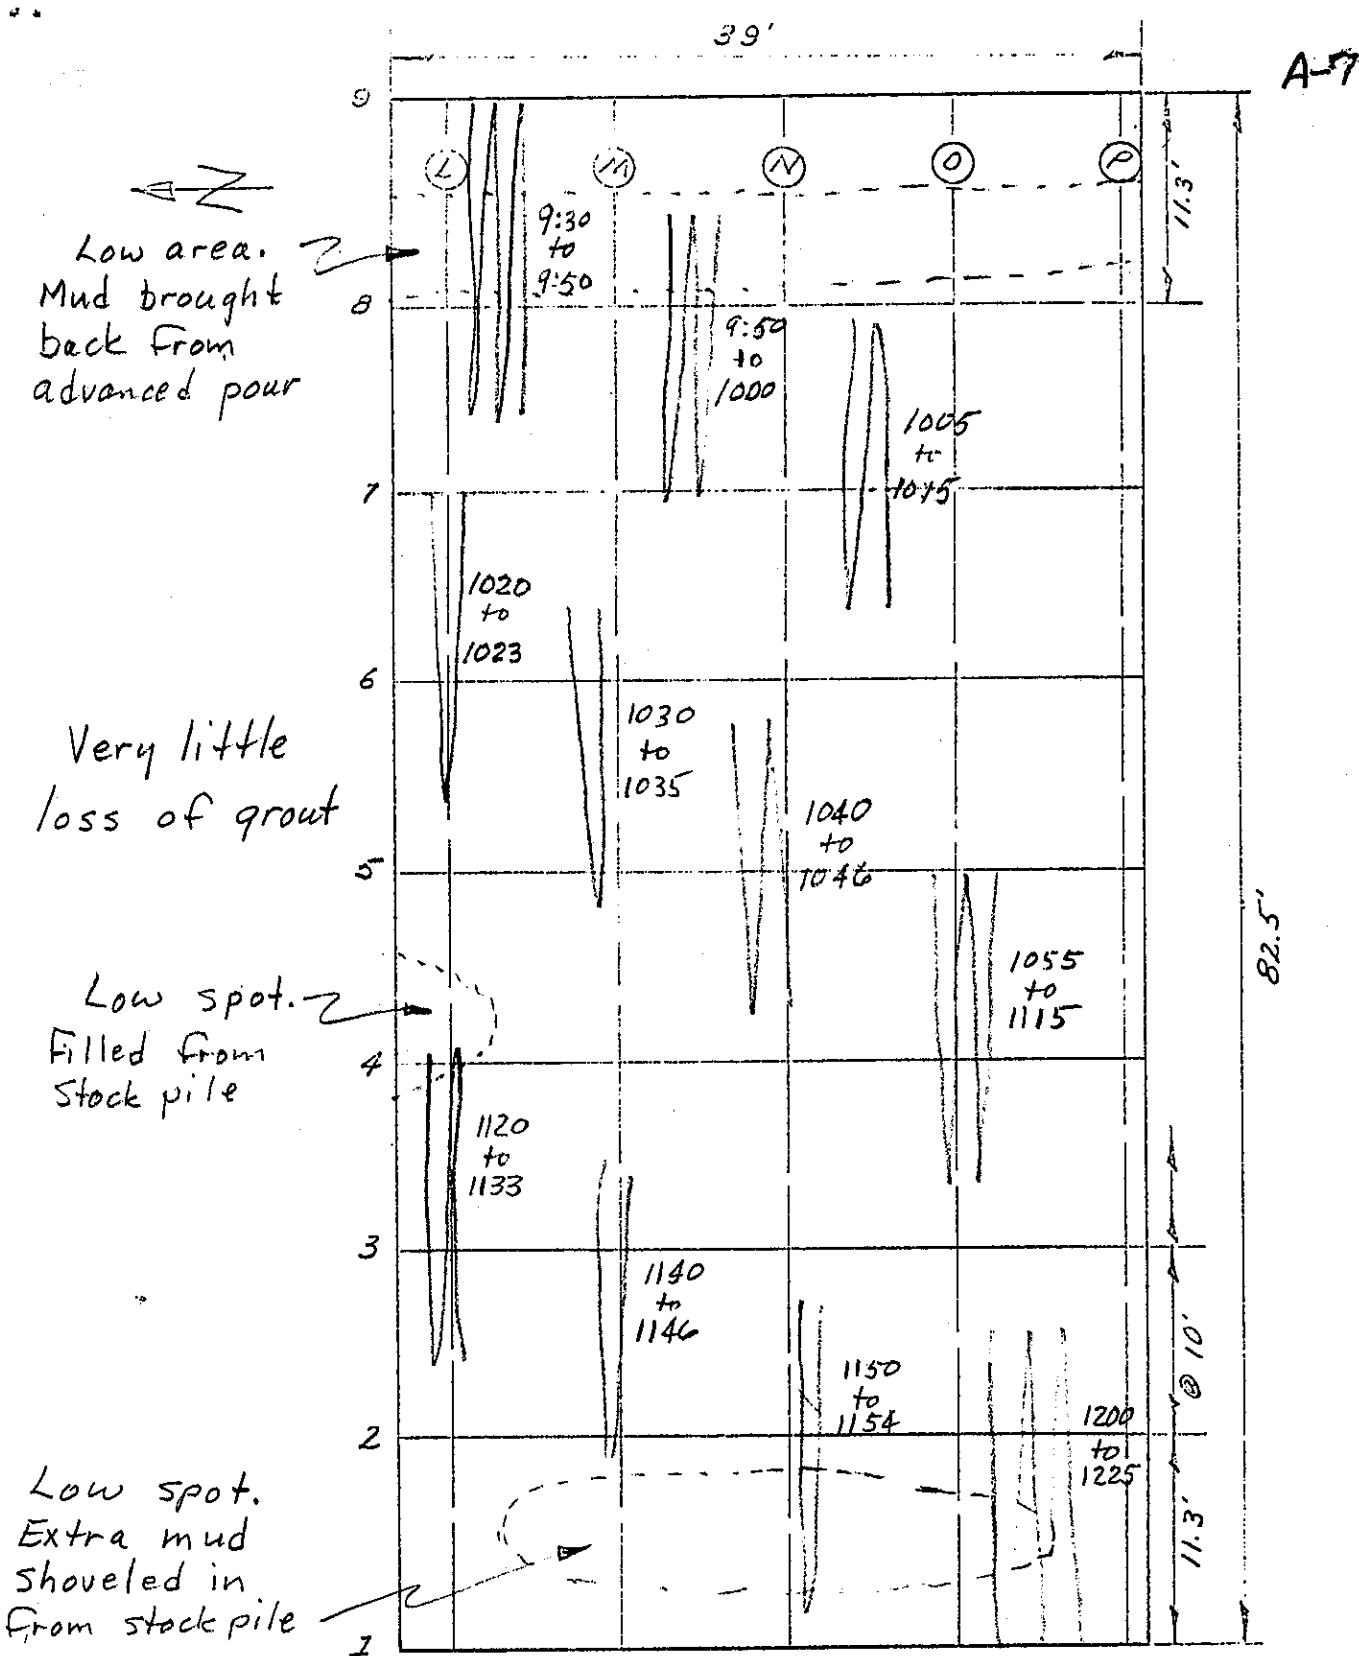 39'
A-7
9
L M N O P
11.3'
Low area.
Mud brought
back from
advanced pour
9:30
to
9:50
8
9:50
to
1000
1005
to
1015
7
1020
to
1023
6
1030
to
1035
Very little
loss of grout
1040
to
1046
5
82.5'
1055
to
1115
Low spot.
Filled from
Stock pile
4
1120
to
1133
3
1140
to
1146
@ 10'
1150
to
1154
1200
to
1225
2
11.3'
Low spot.
Extra mud
Shoveled in
from stock pile
1